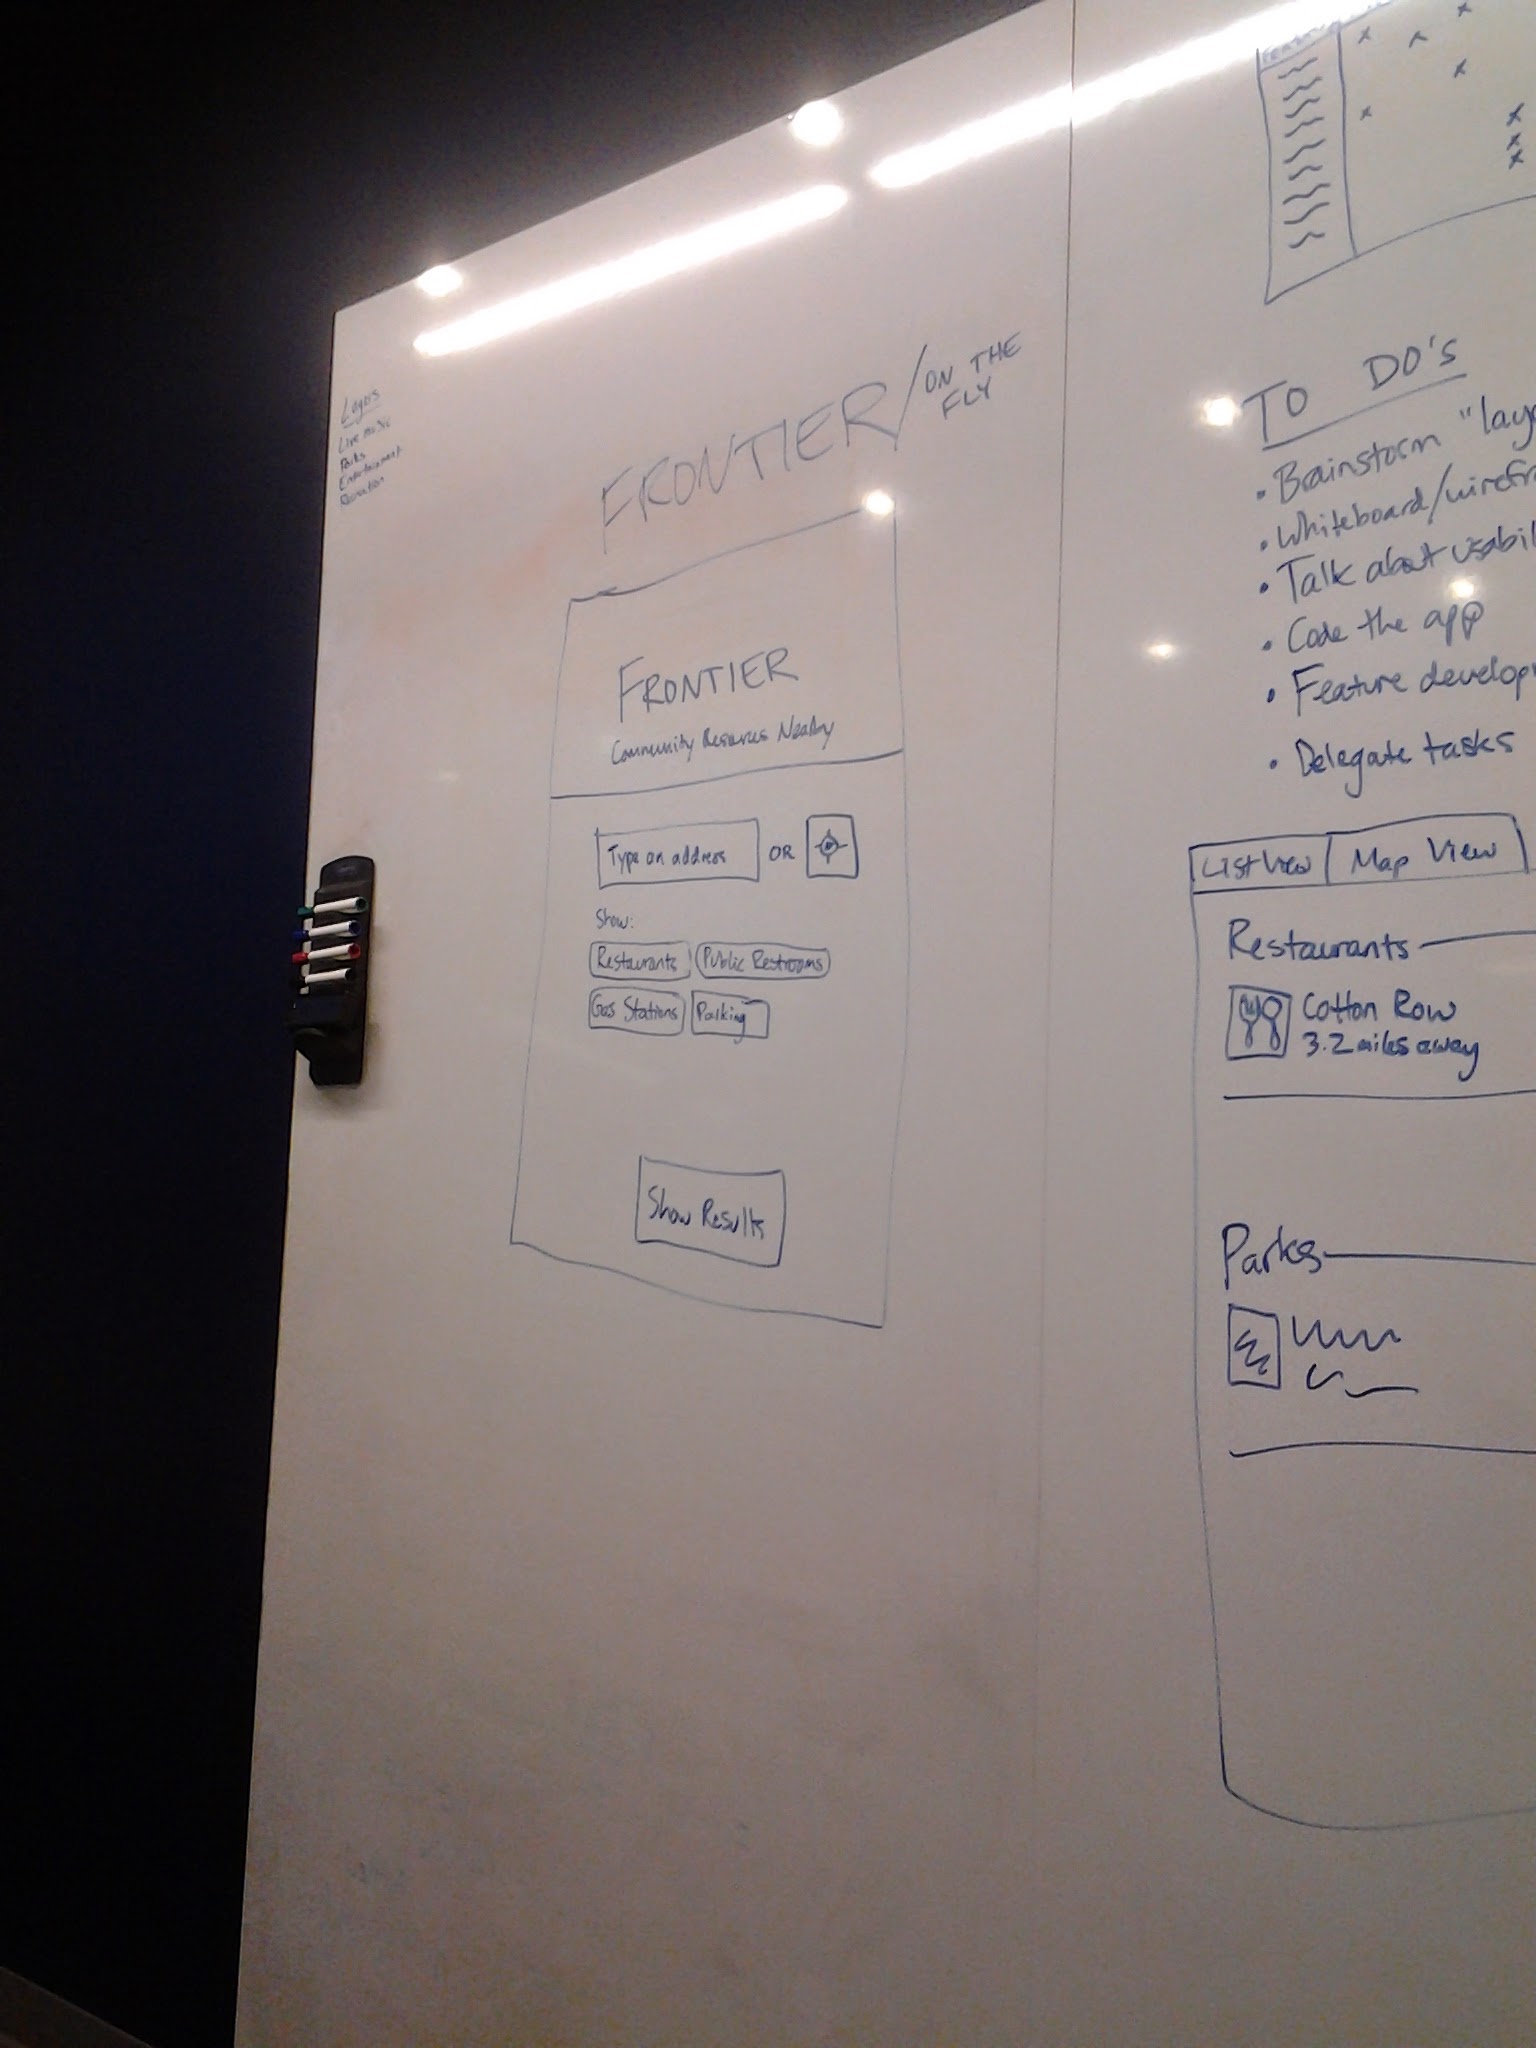 Layers
Live music
Parks
Entertainment
Recreation
FRONTIER/ON THE
FLY
FRONTIER
Community Resources Nearby
Type an address OR
Show:
Restaurants Public Restrooms
Gas Stations Parking
Show Results
TO DO'S
• Brainstorm "laye
• Whiteboard/wirefra
• Talk about usabil
• Code the app
• Feature develop
• Delegate tasks
List View Map View
Restaurants
Cotton Row
3.2 miles away
Parks